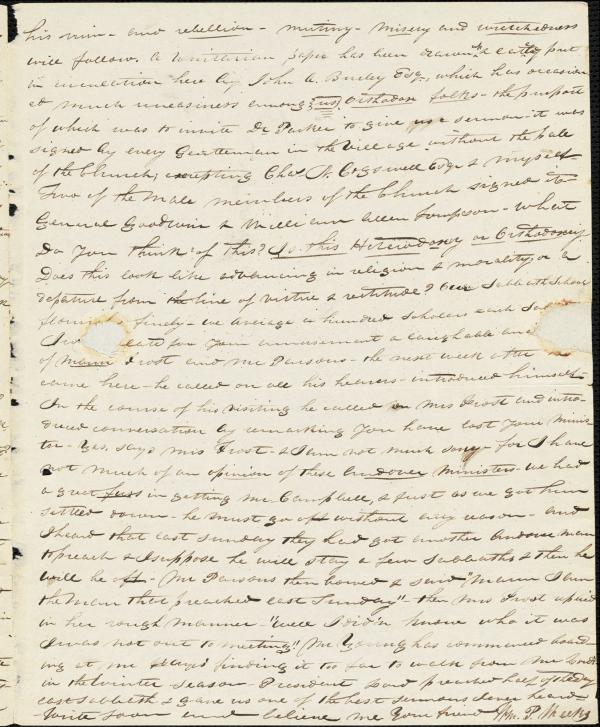 his ruin - and rebellion - mutiny - misery and wretchedness
will follow. A Unitarian paper has been drawn & lately put
in circulation here by John A. Burley Esq, which has occasion
ed much uneasiness among us Orthodox folks - the purport
of which was to invite Dr Parker to give us a sermon - it was
signed by every Gentleman in the village without the pale
of the Church, excepting Chas N. Cogswell Esqr & myself
Two of the Male members of the Church signed to
General Goodwin & William Allen Thompson - What
Do you think of this? Is this Heterodoxey or Orthodoxey
Does this look like advancing in religion & morality or a
departure from the line of virtue & rectitude? Our Sabbath School
flourishes finely - we average a hundred scholars each
I for your amusement a laughable
of Mann Frost and Mr Parsons - the next week after
came here - he called on all his hearers - introduced himself -
In the course of his visiting he called on Mrs Frost and intro-
duced conversation by remarking you have lost your Minis-
ter - Yes, says Mrs Frost - & I am not much sorry - for I have
not much of an opinion of these Andover Ministers - we had
a great fuss in getting Mr Campbell, & just as we got him
settled down - he must go off without any reason - and
I heard that last Sunday they had got another Andover man
to preach & I suppose he will stay a few Sabbaths & then he
will be off - Mr Parsons then bowed & said "Mann I am
the Man that preached last Sunday" - then Mrs Frost replied
in her rough manner - "Well I did'n know who it was
I was not out to meeting" Mr Young has commenced board
ing at Mr finding it too far to walk from Mr
in the winter season - President Lord preached half of the day
last Sabbath & gave us one of the best sermons I ever heard
Write soon and believe me Your friend Wm. P. Weeks